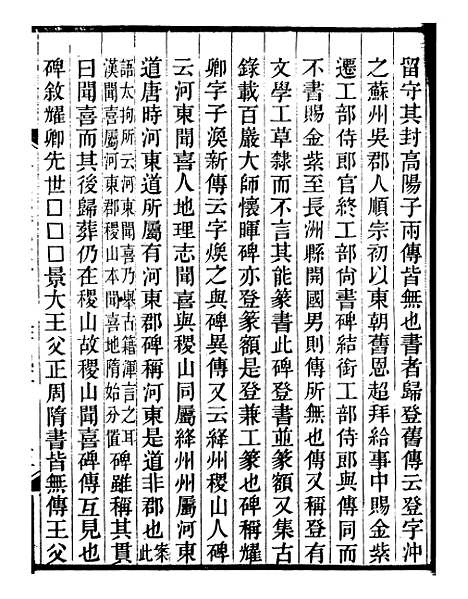 留守其封高陽子兩傳皆無也書者歸登舊傳云登字沖
之蘇州吳郡人順宗初以東朝舊恩超拜給事中賜金紫
遷工部侍郎官終工部尙書碑結銜工部侍郎與傳同而
不書賜金紫至長洲縣開國男則傳所無也傳又稱登有
文學工草隸而不言其能篆書此碑登書並篆額又集古
錄載百巖大師懷暉碑亦登篆額是登兼工篆也碑稱耀
卿字子渙新傳云字煥之與碑異傳又云絳州稷山人碑
云河東聞喜人地理志聞喜與稷山同屬絳州州屬河東
道唐時河東道所屬有河東郡碑稱河東是道非郡也案此
語太拘所云河東聞喜乃舉古籍渾言之耳
漢聞喜屬河東郡稷山本聞喜地隋始分置碑雖稱其貫
曰聞喜而其後歸葬仍在稷山故稷山聞喜碑傳互見也
碑敘耀卿先世□□□景大王父正周隋書皆無傳王父